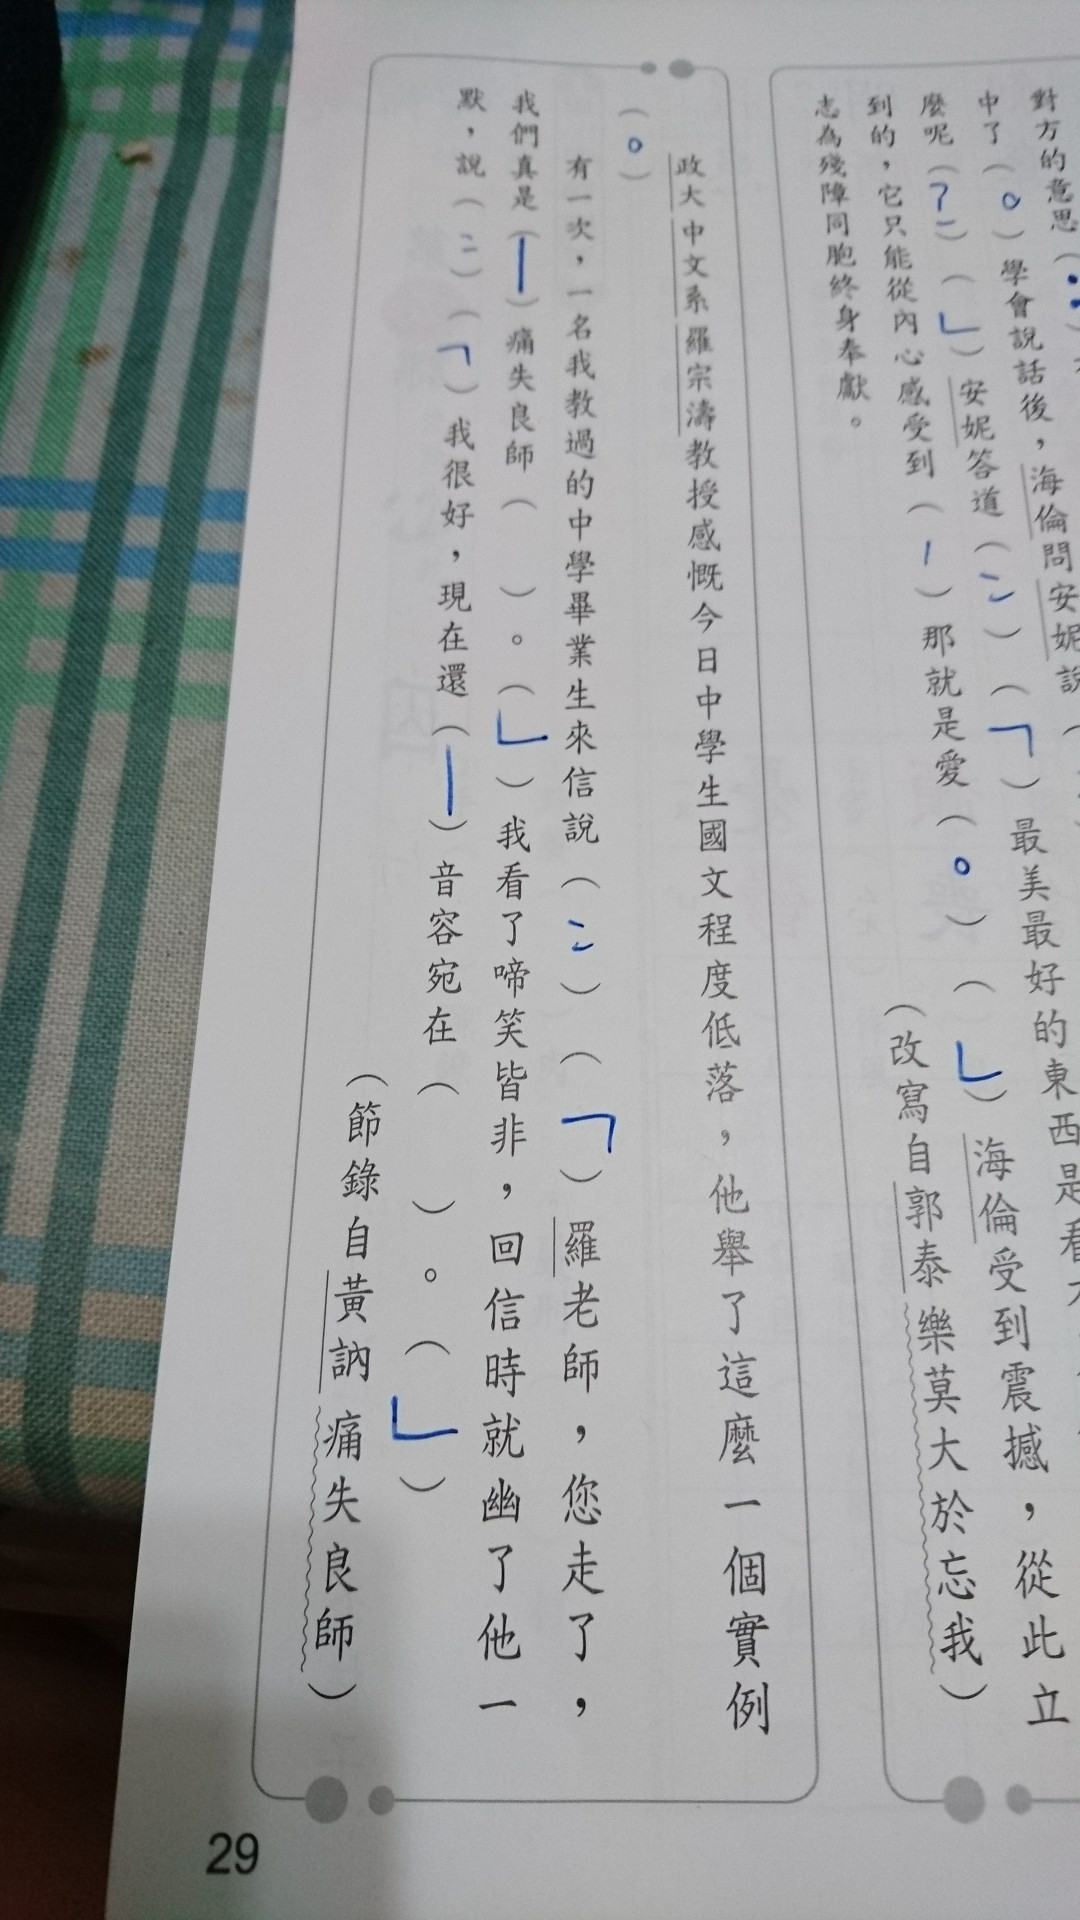 對方的意思（：
中了（。）學會說話後，海倫問安妮說
麼呢（？）（」）安妮答道（：）（「）最美最好的東西是看
到的，它只能從內心感受到（—）那就是愛（。）（」）海倫受到震撼，從此立
志為殘障同胞終身奉獻。
（改寫自郭泰樂莫大於忘我）
政大中文系羅宗濤教授感慨今日中學生國文程度低落，他舉了這麼一個實例
（。）
有一次，一名我教過的中學畢業生來信說（：）（「）羅老師，您走了，
我們真是（—）痛失良師（　）。（」）我看了啼笑皆非，回信時就幽了他一
默，說（：）（「）我很好，現在還（—）音容宛在（　）。（」）
（節錄自黃訥痛失良師）
29